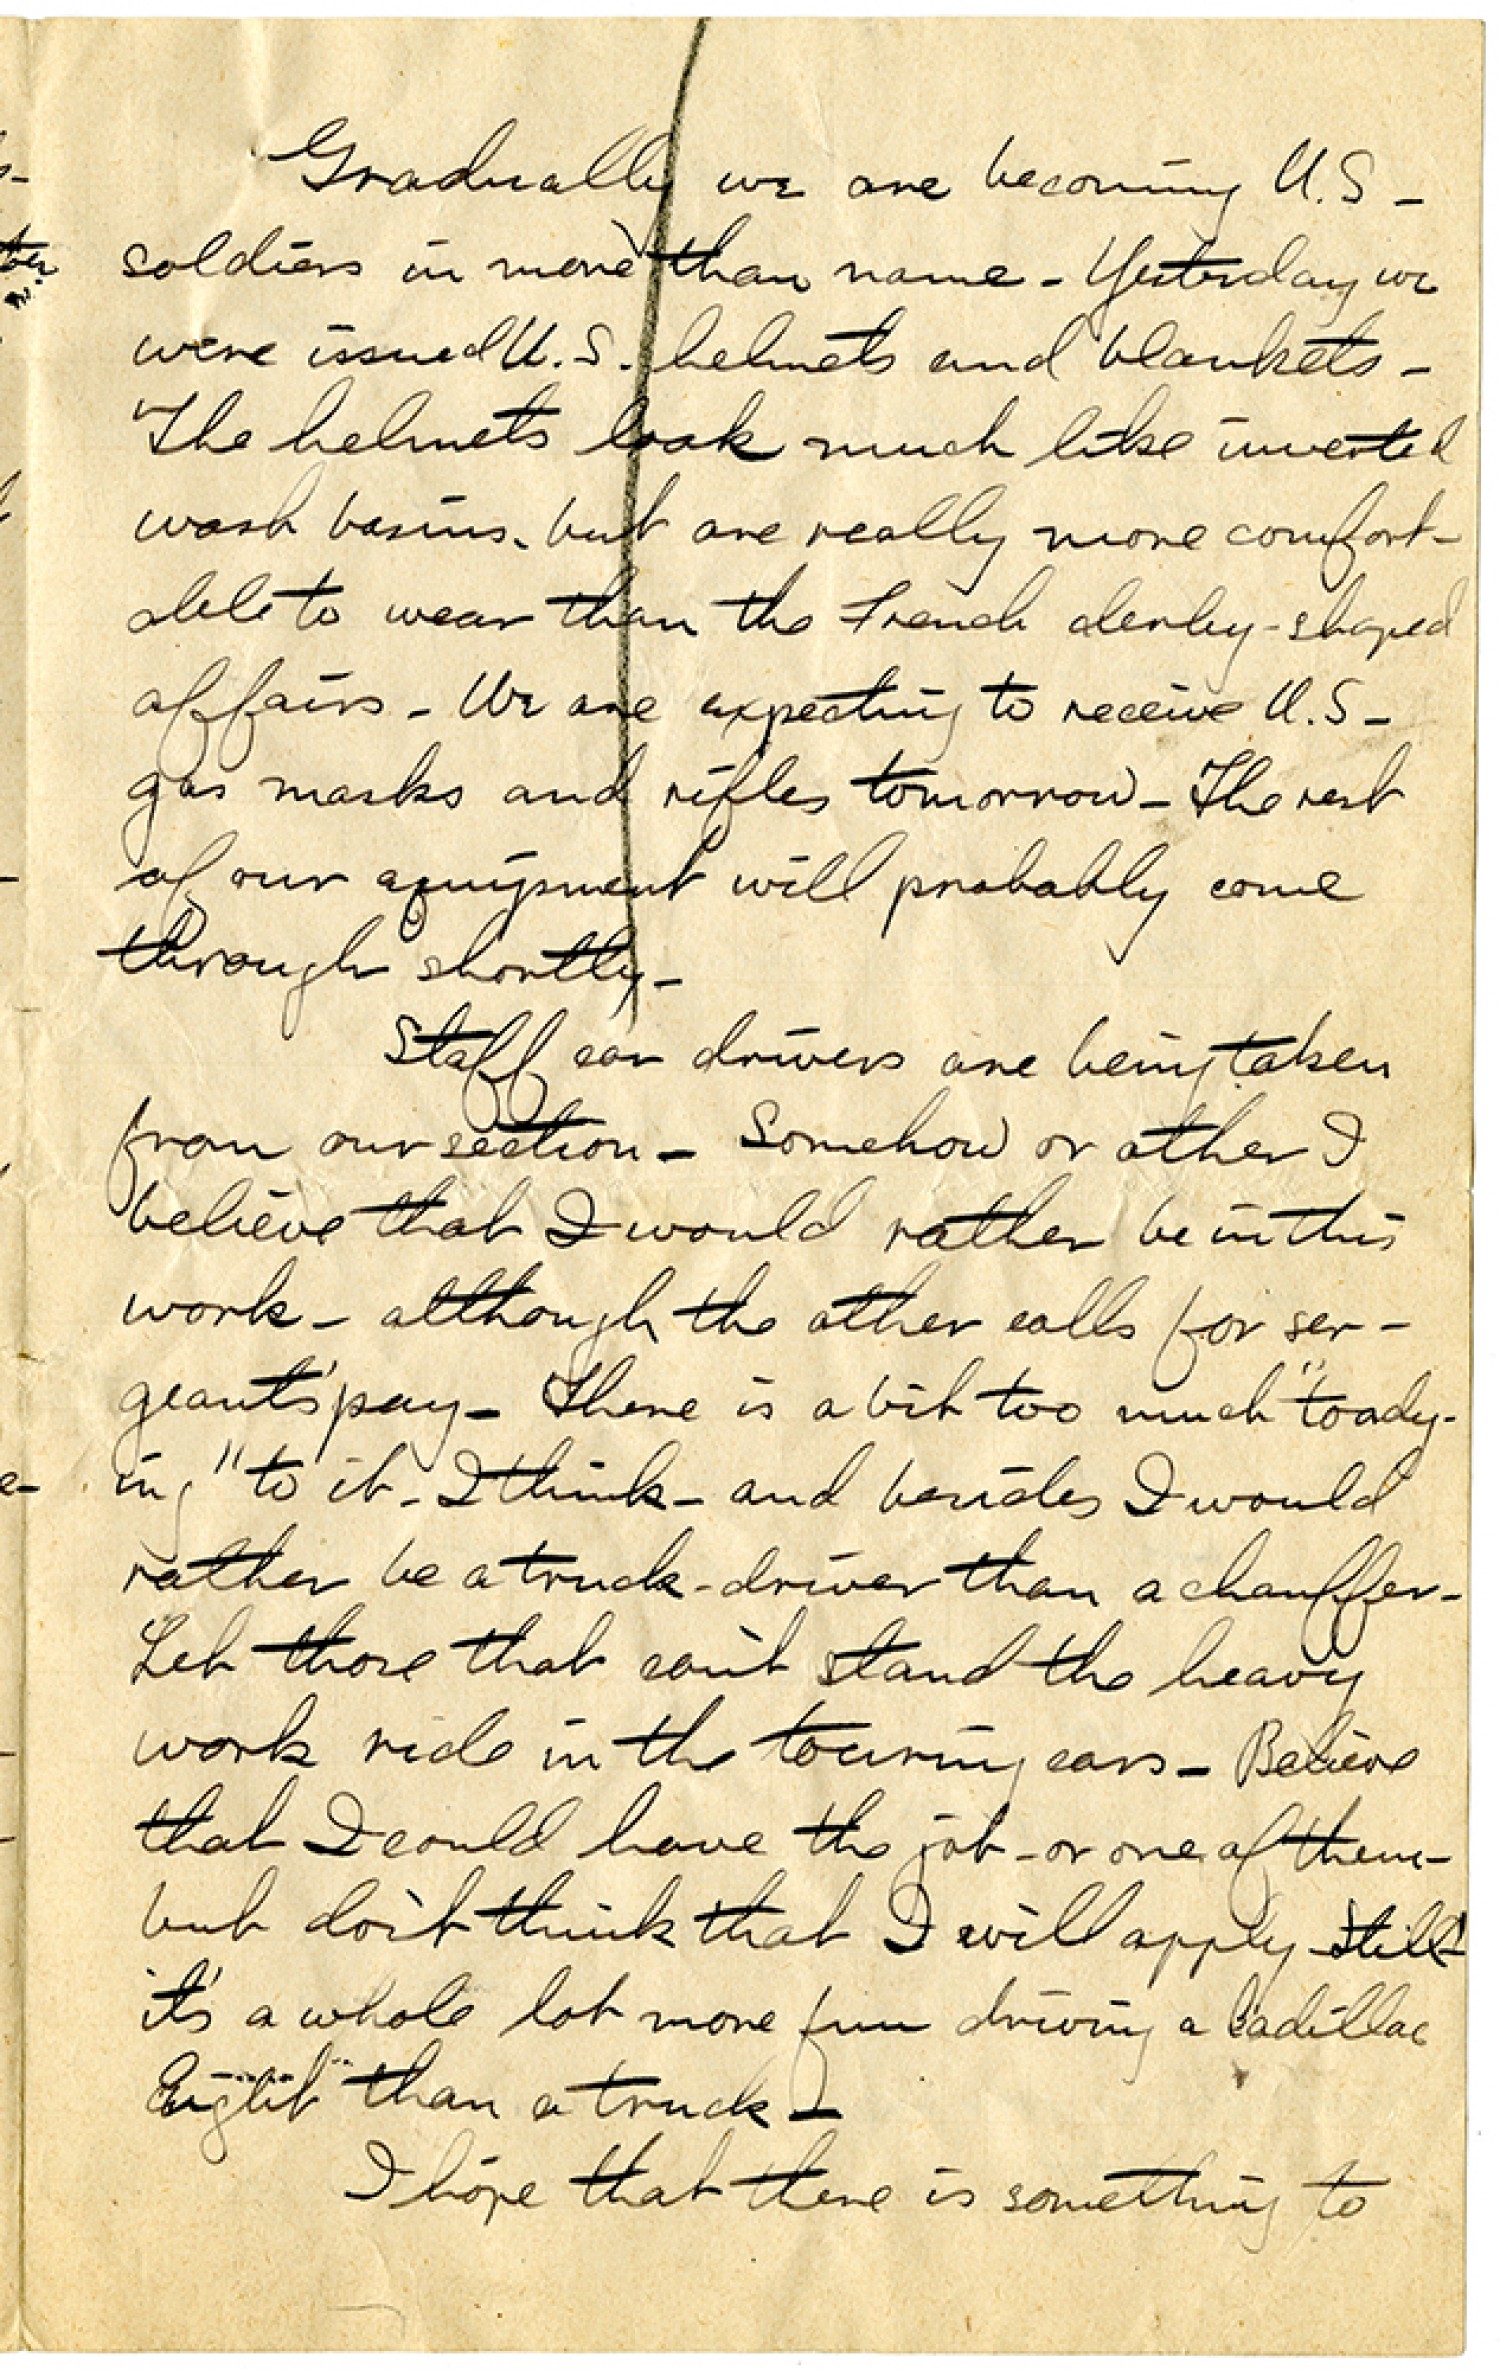 Gradually we are becoming U.S -
soldiers in more than name - Yesterday we
were issued U.S. helmets and blankets -
The helmets look much like inverted
wash basins - but are really more comfort-
able to wear than the French derby-shaped
affairs - We are expecting to receive U.S -
gas masks and rifles tomorrow - The rest
of our equipment will probably come
through shortly -
Staff car drivers are being taken
from our section - Somehow or other I
believe that I would rather be in this
work - although the other calls for ser-
geants' pay - There is a bit too much "toady-
ing" to it - I think - and besides I would
rather be a truck-driver than a chauffer -
Let those that can't stand the heavy
work ride in the touring cars - Believe
that I could have the job - or one of them -
but don't think that I will apply - Still -
it's a whole lot more fun driving a Cadillac
"Eight" than a truck -
I hope that there is something to